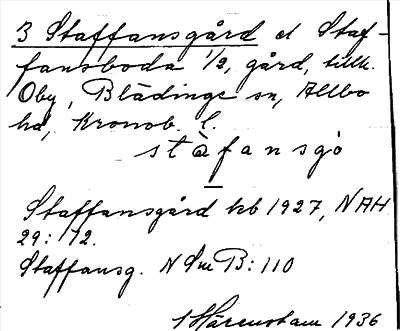 3 Staffansgård el Staf-
fansboda 1/2, gård, tillh.
Oby, Blädinge sn, Allbo
hd, Kronob. l.
stàfansgò
Staffansgård kb 1927, NAH
29:172.
Staffansg. N Sm B:110
Härenstam 1936